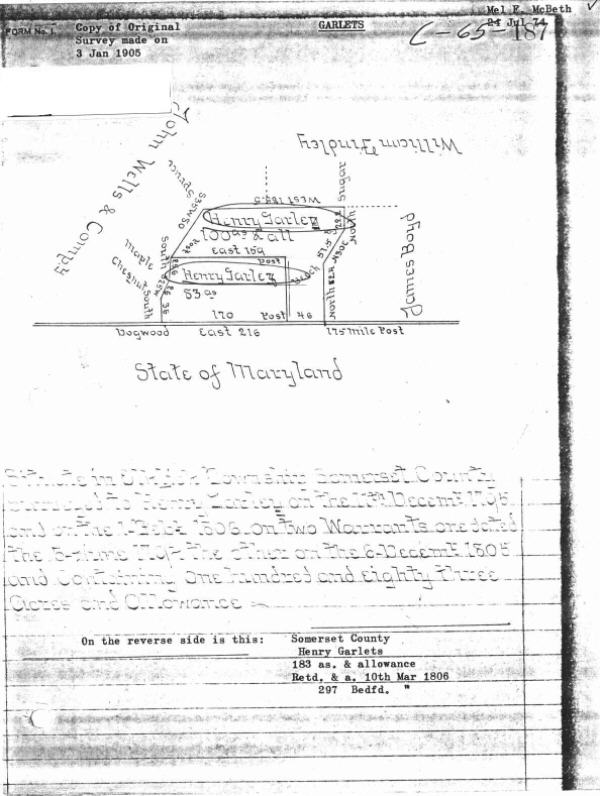 Mel E. McBeth
24 Jul 74
C-65-187
FORM No. 1
Copy of Original
Survey made on
3 Jan 1905
GARLETS
John Wells & Compy
William Findley
James Boyd
Spruce
S35W50
West 125.5
Sugar
Henry Garley
100 as & all
East 159
Post
Post
Maple
South
Chestnut
South
36
Henry Garley
83 as
Beech
57.5
N30E
North
North
170
Post
46
Dogwood
East 216
175 Mile Post
State of Maryland
Situate in Township Somerset County
Surveyed to Henry Garley on the 11th Decemr 1795
and on the 1 1806, on two Warrants one dated
the the other on the 6 Decemr 1805
and Containing One hundred and eighty three
Acres and Allowance
On the reverse side is this:
Somerset County
Henry Garlets
183 as. & allowance
Retd. & a. 10th Mar 1806
297 Bedfd. "